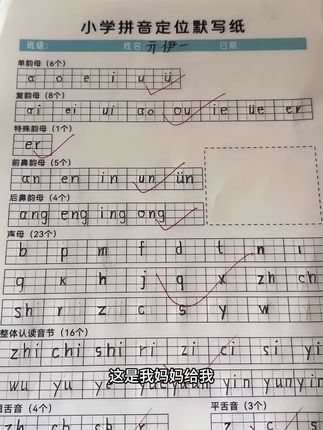 小学拼音定位默写纸
班级： 姓名：亓伊一 日期：
单韵母（6个）
a o e i u ü
复韵母（8个）
ai ei ui ao ou iu ie üe er
特殊韵母（1个）
er
前鼻韵母（5个）
an en in un ün
后鼻韵母（4个）
ang eng ing ong
声母（23个）
b p m f d t n l
g k h j q x zh ch
sh r z c s y w
整体认读音节（16个）
zhi chi shi ri zi ci si yi
wu yu ye yue yuan yin yun yin
这是我妈妈给我
翘舌音（4个） 平舌音（3个）